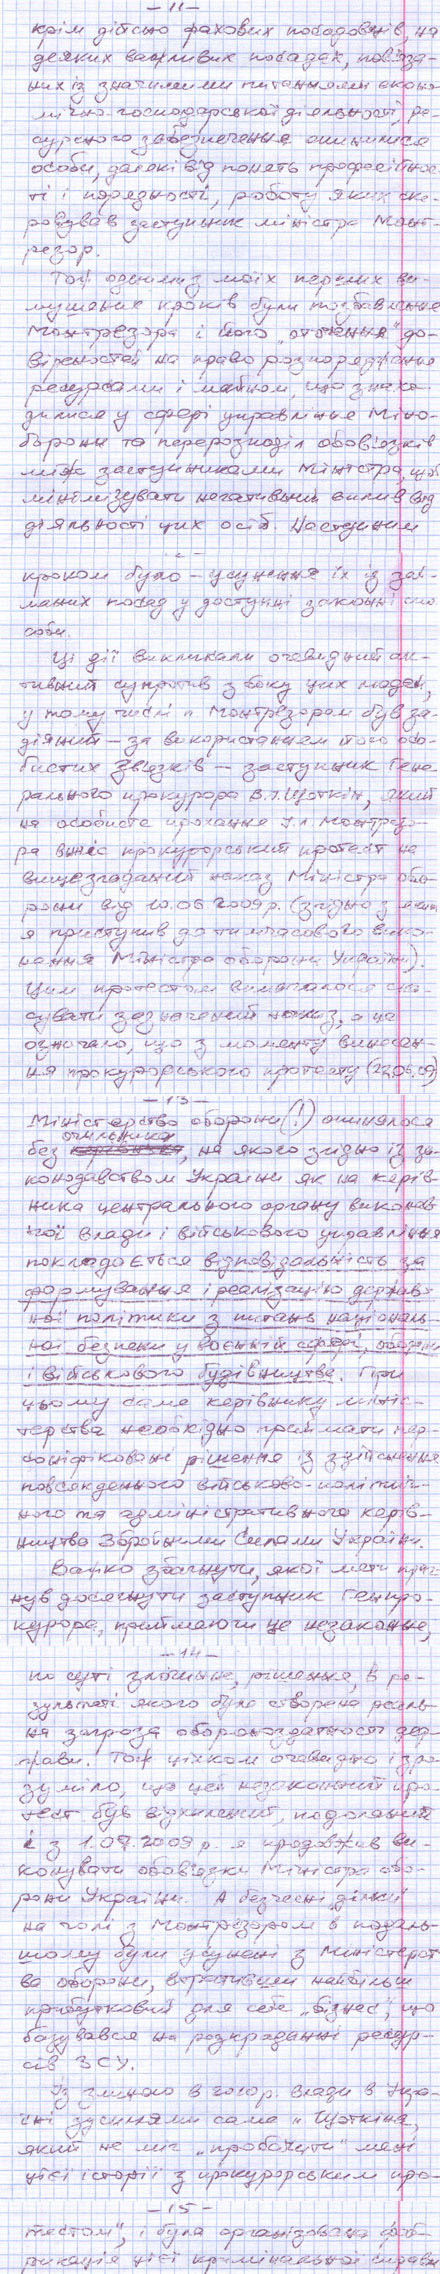 - 11 -
крім дійсно фахових посадовців, на
деяких важливих посадах, пов'яза-
них із значимими питаннями еконо-
мічно-господарської діяльності, ре-
сурсного забезпечення опинилися
особи, далекі від понять професійнос-
ті і порядності, роботу яких ске-
ровував заступник міністра Монт-
резор.
Тож одними з моїх перших ви-
мушених кроків були позбавлення
Монтрезора і його „оточення" до-
віреностей на право розпоряджання
ресурсами і майном, що знахо-
дилися у сфері управління Міно-
борони та перерозподіл обов'язків
між заступниками Міністра, щоб
мінімізувати негативний вплив від
діяльності цих осіб. Наступним
кроком було – усунення їх із зай-
маних посад у доступні законні спо-
соби.
Ці дії викликали очевидний ак-
тивний супротив з боку цих людей,
у тому числі п. Монтрезором був за-
діяний – за використанням його осо-
бистих звязків – заступник Гене-
рального прокурора В.І. Щоткін, який
на особисте прохання п. Монтрезо-
ра виніс прокурорський протест на
вищезгаданий наказ Міністра обо-
рони від 10.06 2009р. (згідно з яким
я приступив до тимчасового вико-
нання Міністра оборони України).
Цим протестом вимагалося ска-
сувати зазначений наказ, а це
означало, що з моменту винесен-
ня прокурорського протесту (22.06.09)
- 13 -
Міністерство оборони (!) опинялося
без очільника, на якого згідно із за-
конодавством України як на керів-
ника центрального органу виконав-
чої влади і військового управління
покладається відповідальність за
формування і реалізацію держав-
ної політики з питань національ-
ної безпеки у воєнній сфері, оборони
і військового будівництва. При
цьому саме керівнику мініс-
терства необхідно приймати пер-
соніфіковані рішення із здійснення
повсякденного військово-політич-
ного та адміністративного керів-
ництва Збройними Силами України.
Важко збагнути, якої мети праг-
нув досягнути заступник Генпро-
курора, приймаючи це незаконне,
- 14 -
по суті злочинне, рішення, в ре-
зультаті якого була створена реаль-
на загроза обороноздатності дер-
жави. Тож цілком очевидно і зро-
зуміло, що цей незаконний про-
тест був відхилений, подоланий
і з 1.07.2009 р. я продовжив ви-
конувати обов'язки Міністра обо-
рони України. А безчесні „ділки"
на чолі з Монтрезором в подаль-
шому були усунені з Міністерст-
ва оборони, втративши найбільш
прибутковий для себе „бізнес", що
базувався на розкраданні ресур-
сів ЗСУ.
Із зміною в 2010р. влади в Укра-
їні зусиллями саме п. Щоткіна,
який не міг „пробачити" мені
цієї історії з прокурорським про-
- 15 -
тестом", і була організована фаб-
рикація цієї кримінальної справи